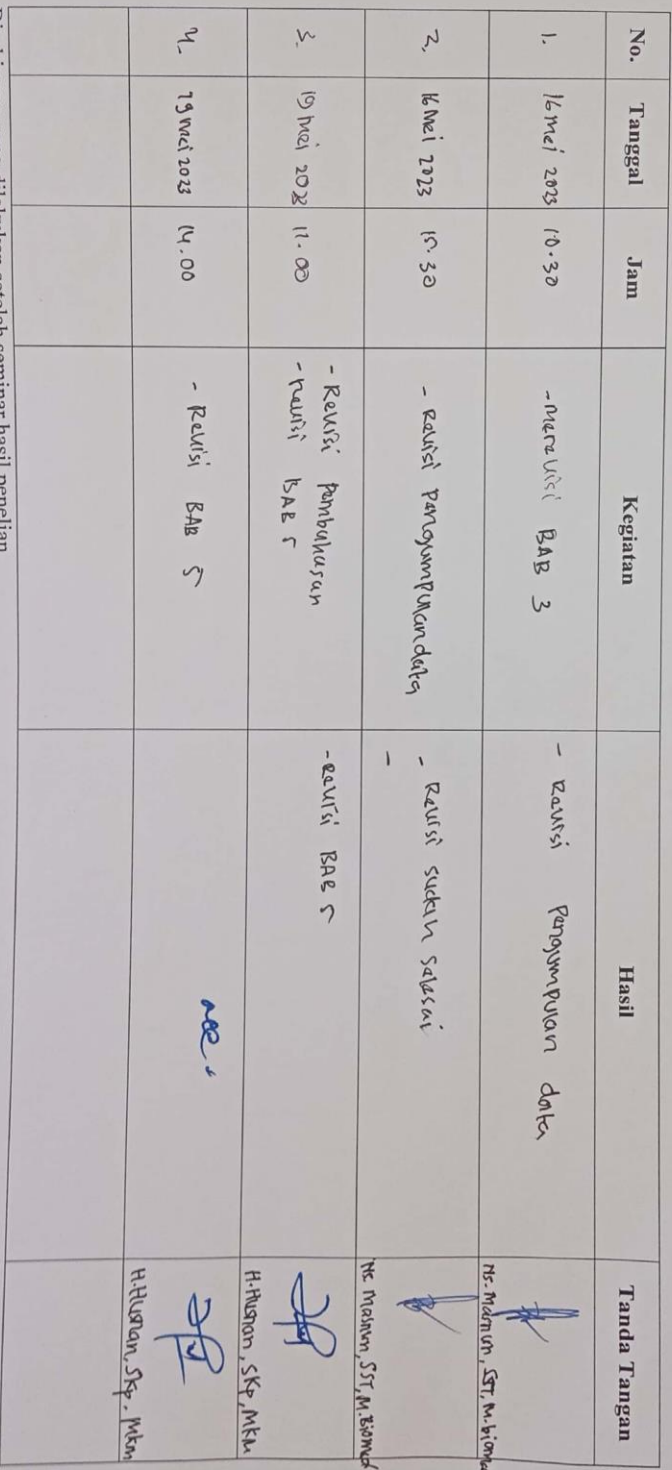 No. Tanggal Jam Kegiatan Hasil Tanda Tangan
1. 16 mei 2023 10.30 - Merevisi BAB 3 - Revisi Pengumpulan data
Ns. Masnun, SST, M.biome
2. 16 Mei 2023 15.30 - Revisi pengumpulan data - Revisi sudah selesai
-
Ns. Masnun, SST, M.Biomed
3. 19 mei 2023 11.00 - Revisi Pembahasan - Revisi BAB 5
- Revisi BAB 5
H. Husnan, SKp, MKM
4. 29 mei 2023 14.00 - Revisi BAB 5 acc.
H. Husnan, SKp. MKM
dilakukan setelah seminar hasil penelian